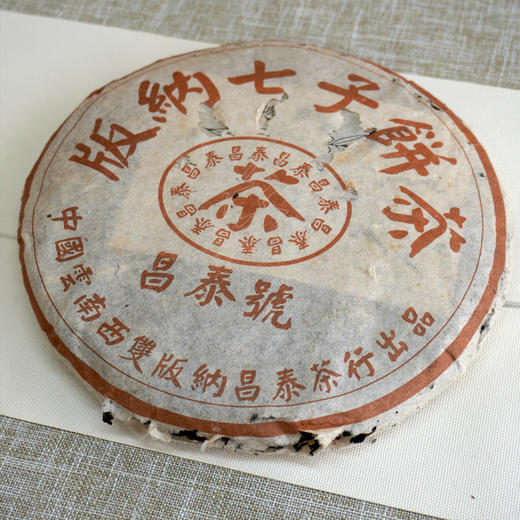 版納七子餅茶
昌泰昌泰昌泰昌泰昌泰昌泰昌泰昌泰
茶
昌泰號
中國雲南西雙版納昌泰茶行出品